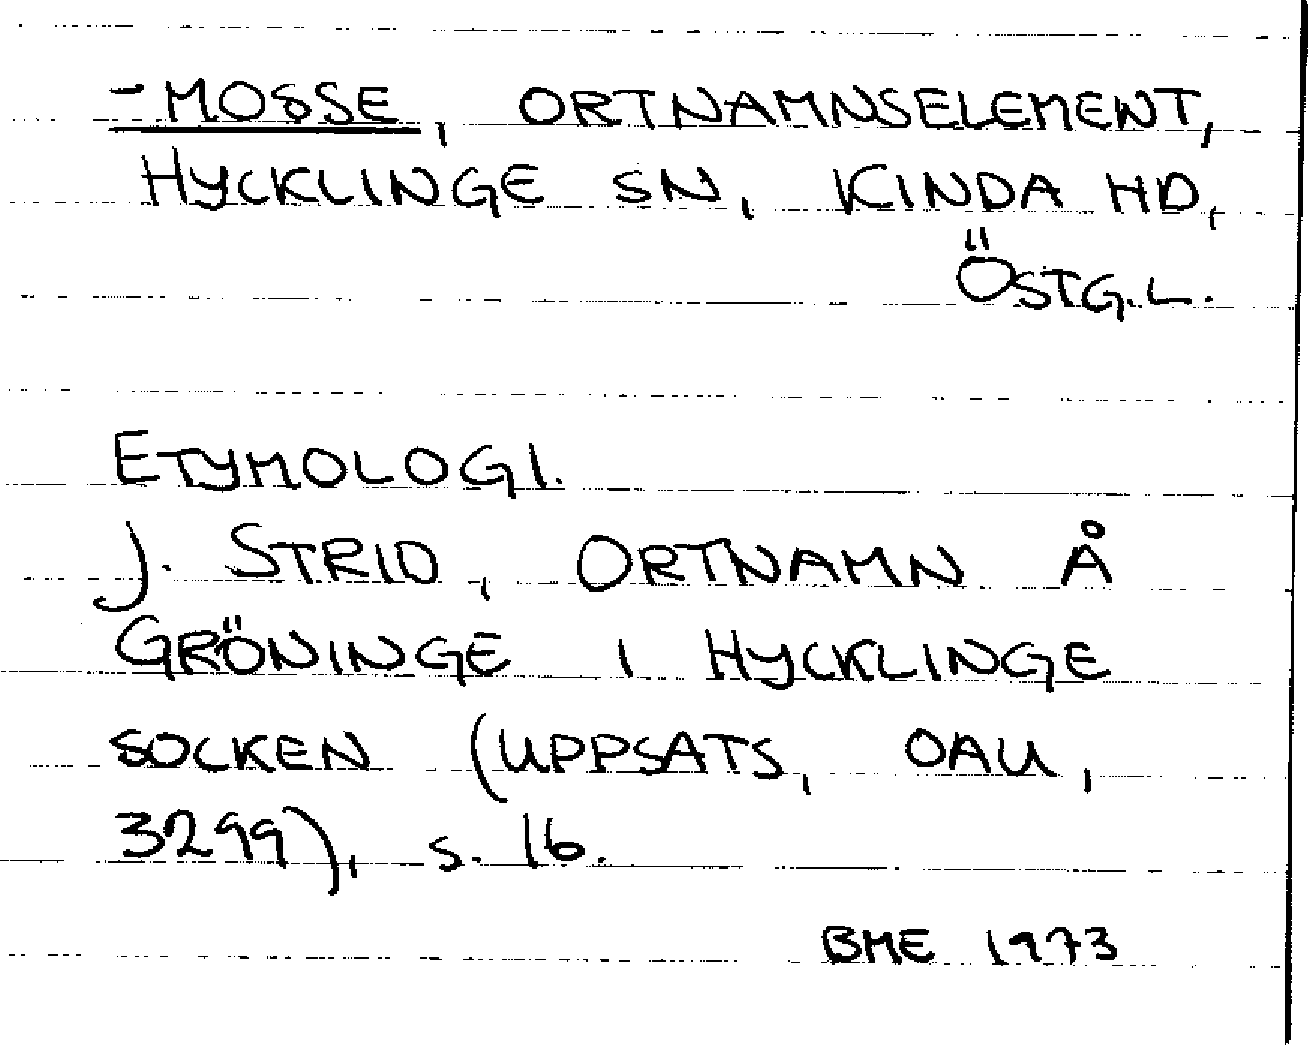 -MOSSE, ORTNAMNSELEMENT,
HYCKLINGE SN, KINDA HD,
ÖSTG.L.
ETYMOLOGI.
J. STRID, ORTNAMN Å
GRÖNINGE I HYCKLINGE
SOCKEN (UPPSATS, OAU,
3299), s. 16.
BME 1973